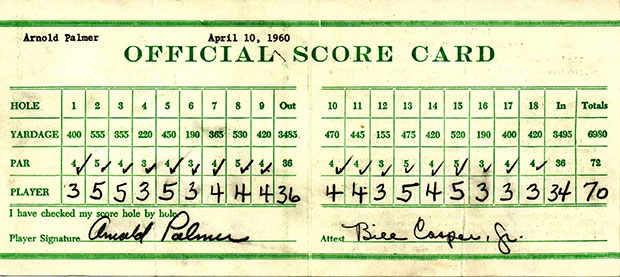 Arnold Palmer April 10, 1960
OFFICIAL SCORE CARD
HOLE 1 2 3 4 5 6 7 8 9 Out 10 11 12 13 14 15 16 17 18 In Totals
YARDAGE 400 555 355 220 450 190 365 530 420 3485 470 445 155 475 420 520 190 400 420 3495 6980
PAR 4 5 4 3 4 3 4 5 4 36 4 4 3 5 4 5 3 4 4 36 72
PLAYER 3 5 5 3 5 3 4 4 4 36 4 4 3 5 4 5 3 3 3 34 70
I have checked my score hole by hole
Player Signature Arnold Palmer Attest Bill Casper, Jr.